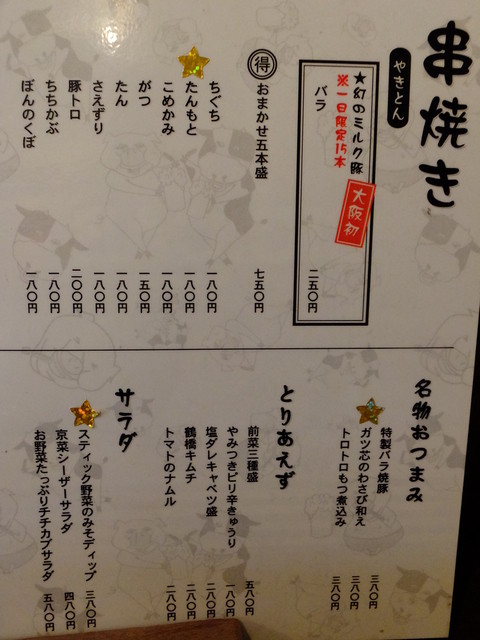 串焼き
やきとん
★幻のミルク豚
※一日限定15本
大阪初
バラ 二五〇円
得 おまかせ五本盛 七五〇円
ちぐち 一八〇円
たんもと 一八〇円
こめかみ 一八〇円
がつ 一五〇円
たん 一八〇円
さえずり 一八〇円
豚トロ 二〇〇円
ちちかぶ 一八〇円
ぼんのくぼ 一八〇円
名物おつまみ
特製バラ焼豚 三八〇円
ガツ芯のわさび和え 三八〇円
トロトロもつ煮込み 三八〇円
とりあえず
前菜三種盛 五八〇円
やみつきピリ辛きゅうり 一八〇円
塩ダレキャベツ盛 二八〇円
鶴橋キムチ 二八〇円
トマトのナムル 二八〇円
サラダ
スティック野菜のみそディップ 三八〇円
京菜シーザーサラダ 四八〇円
お野菜たっぷりチチカブサラダ 五八〇円